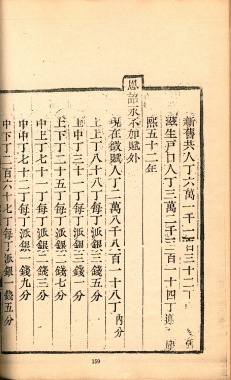 新舊共人丁六萬一千一百三十二丁
滋生戶口人丁三萬二千三百一十四丁遵
康
熙五十二年
恩詔永不加賦外
現在徵賦人丁二萬八千八百一十八丁內分
上上丁八十八丁每丁派銀三錢五分
上中丁三十一丁每丁派銀三錢一分
上下丁二十五丁每丁派銀二錢七分
中上丁七十一丁每丁派銀二錢三分
中中丁七十二丁每丁派銀一錢九分
中下丁二百六十七丁每丁派銀一錢五分
159